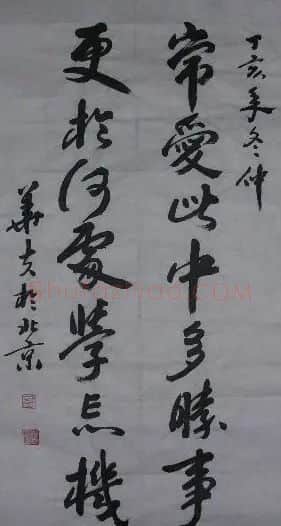 丁亥年冬仲
常愛此中多勝事
更於何處學忘機
華於北京